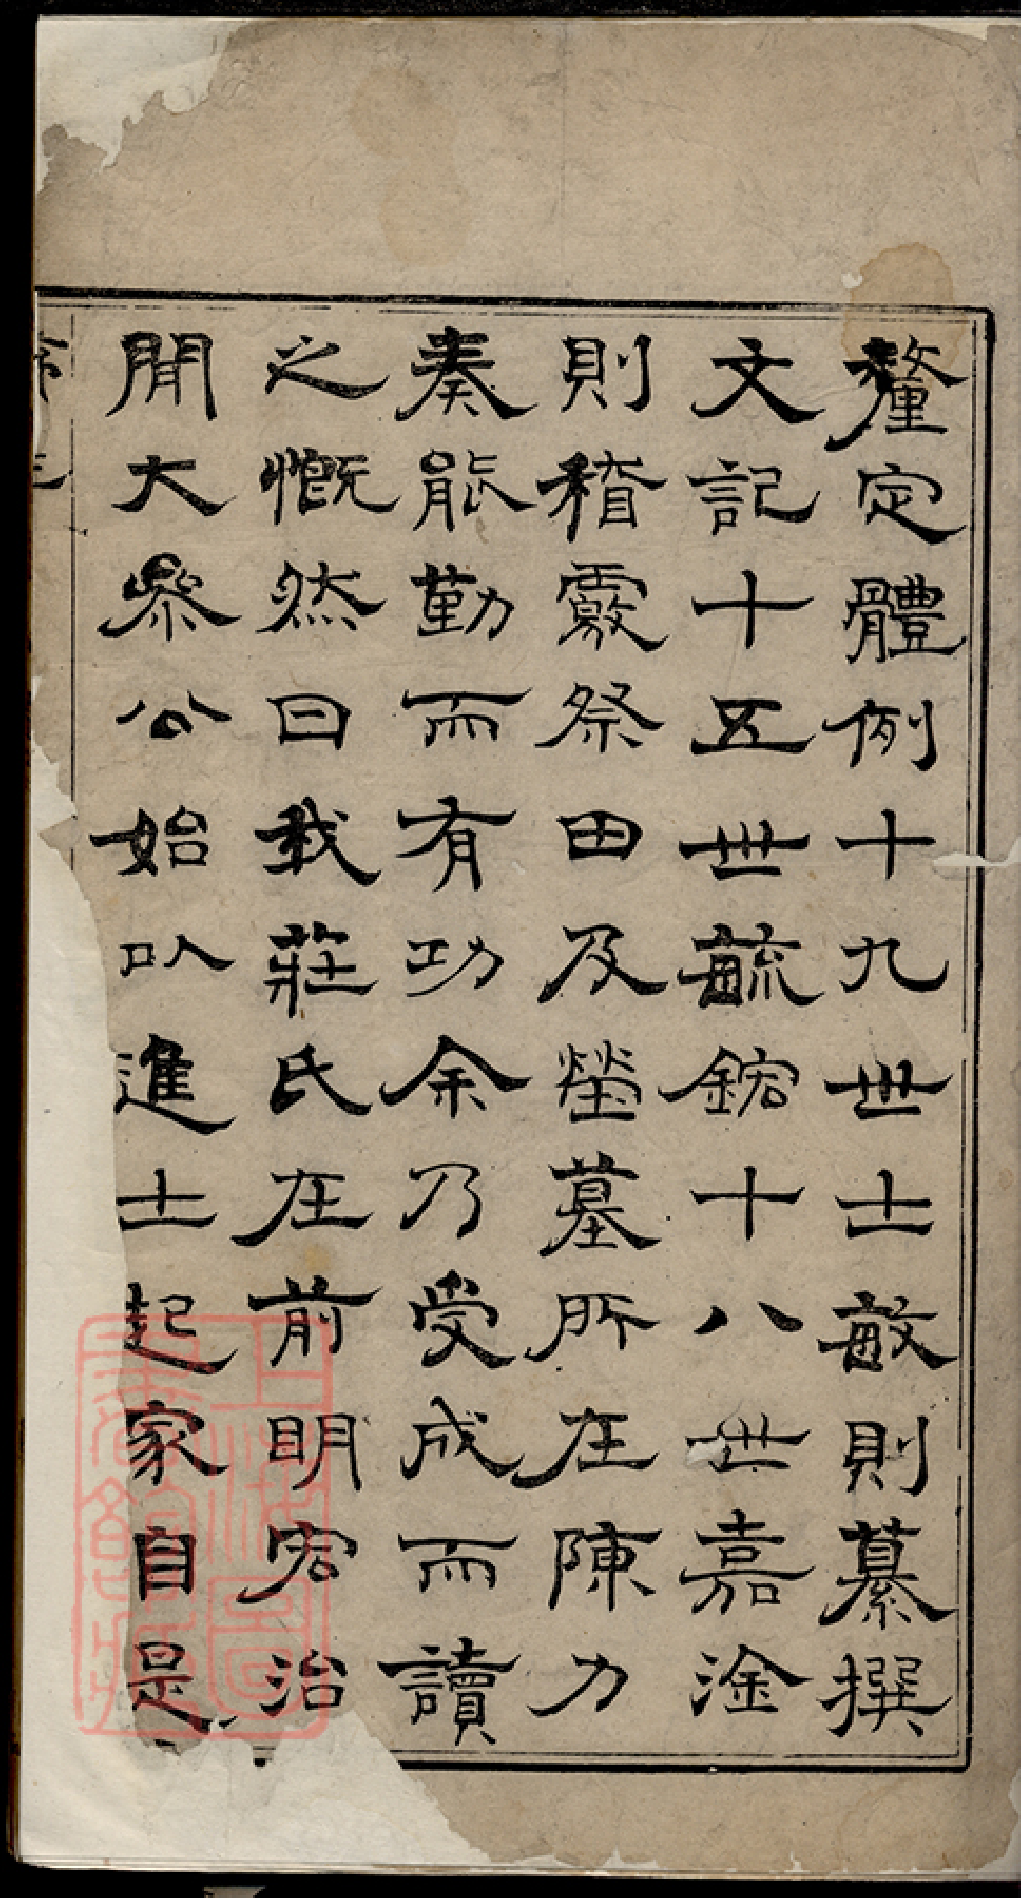 釐定體例十九世士敏則纂撰
文記十五世毓鋐十八世嘉淦
則稽覈祭田及塋墓所在陳力
奏能勤而有功余乃受成而讀
之慨然曰我莊氏在前明宏治
間大參公始以進士起家自是